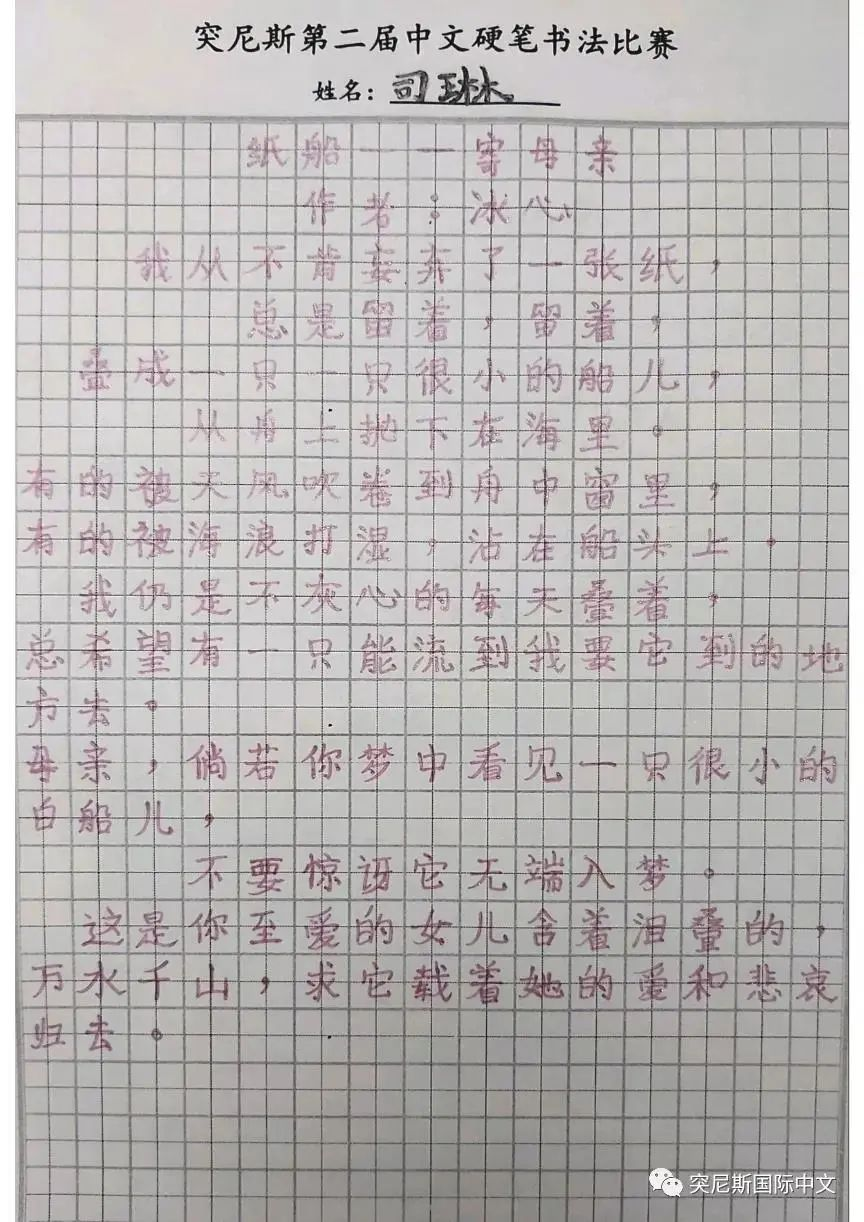 突尼斯第二届中文硬笔书法比赛
姓名：司琳
纸船——寄母亲
作者：冰心
我从不肯妄弃了一张纸，
总是留着，留着，
叠成一只一只很小的船儿，
从舟上抛下在海里。
有的被天风吹卷到舟中窗里，
有的被海浪打湿，沾在船头上。
我仍是不灰心的每天叠着，
总希望有一只能流到我要它到的地
方去。
母亲，倘若你梦中看见一只很小的
白船儿，
不要惊讶它无端入梦。
这是你至爱的女儿含着泪叠的，
万水千山，求它载着她的爱和悲哀
归去。
突尼斯国际中文